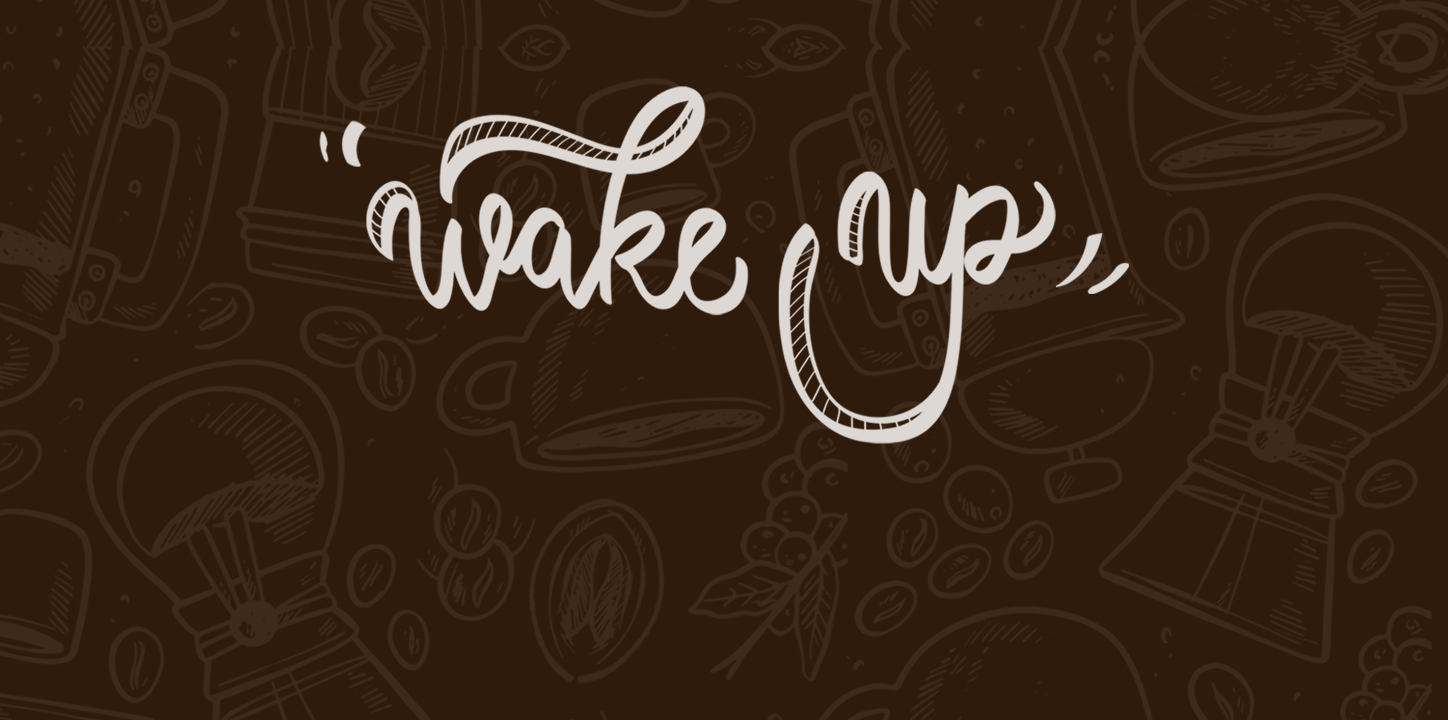 wake up